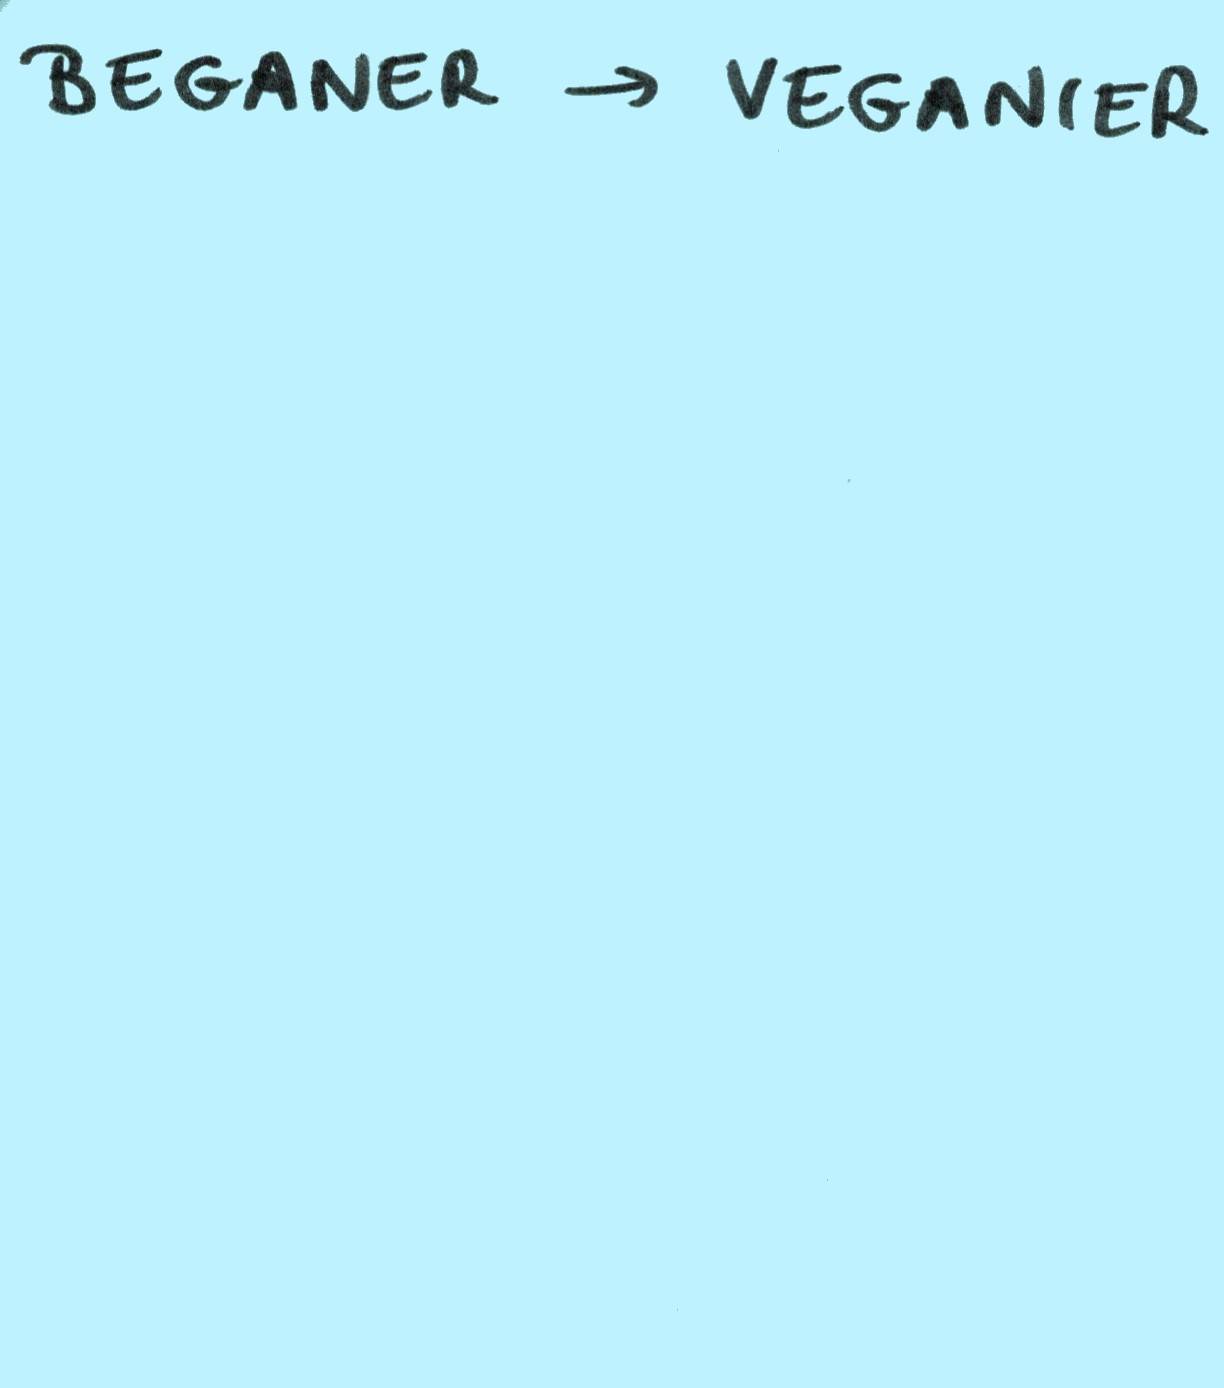 BEGANER → VEGANIER